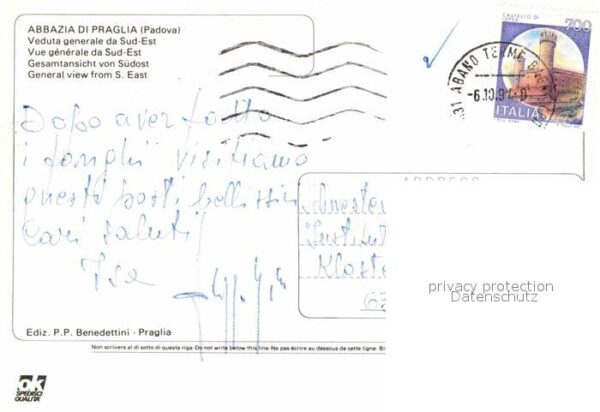 ABBAZIA DI PRAGLIA (Padova)
Veduta generale da Sud-Est
Vue générale du Sud-Est
Gesamtansicht von Südost
General view from S. East
700
ITALIA
ABANO TERME
Dopo aver fatto
i fanghi visitiamo
questi posti bellissimi
Cari saluti
Isa
ADDRESS
Schwester
Institut
Kloste
privacy protection
Datenschutz
Ediz. P.P. Benedettini - Praglia
Non scrivere al di sotto di questa riga-Do not write below this line-Ne pas écrire au dessous de cette ligne
ok
SPEDISCI
QUALITÀ